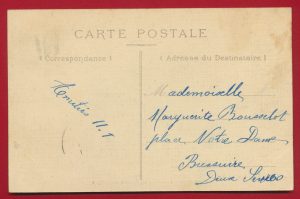 CARTE POSTALE
( Correspondance )
( Adresse du Destinataire )
Amitiés
Mademoiselle
Marguerite Rousselot
place Notre Dame
Bressuire
Deux Sèvres